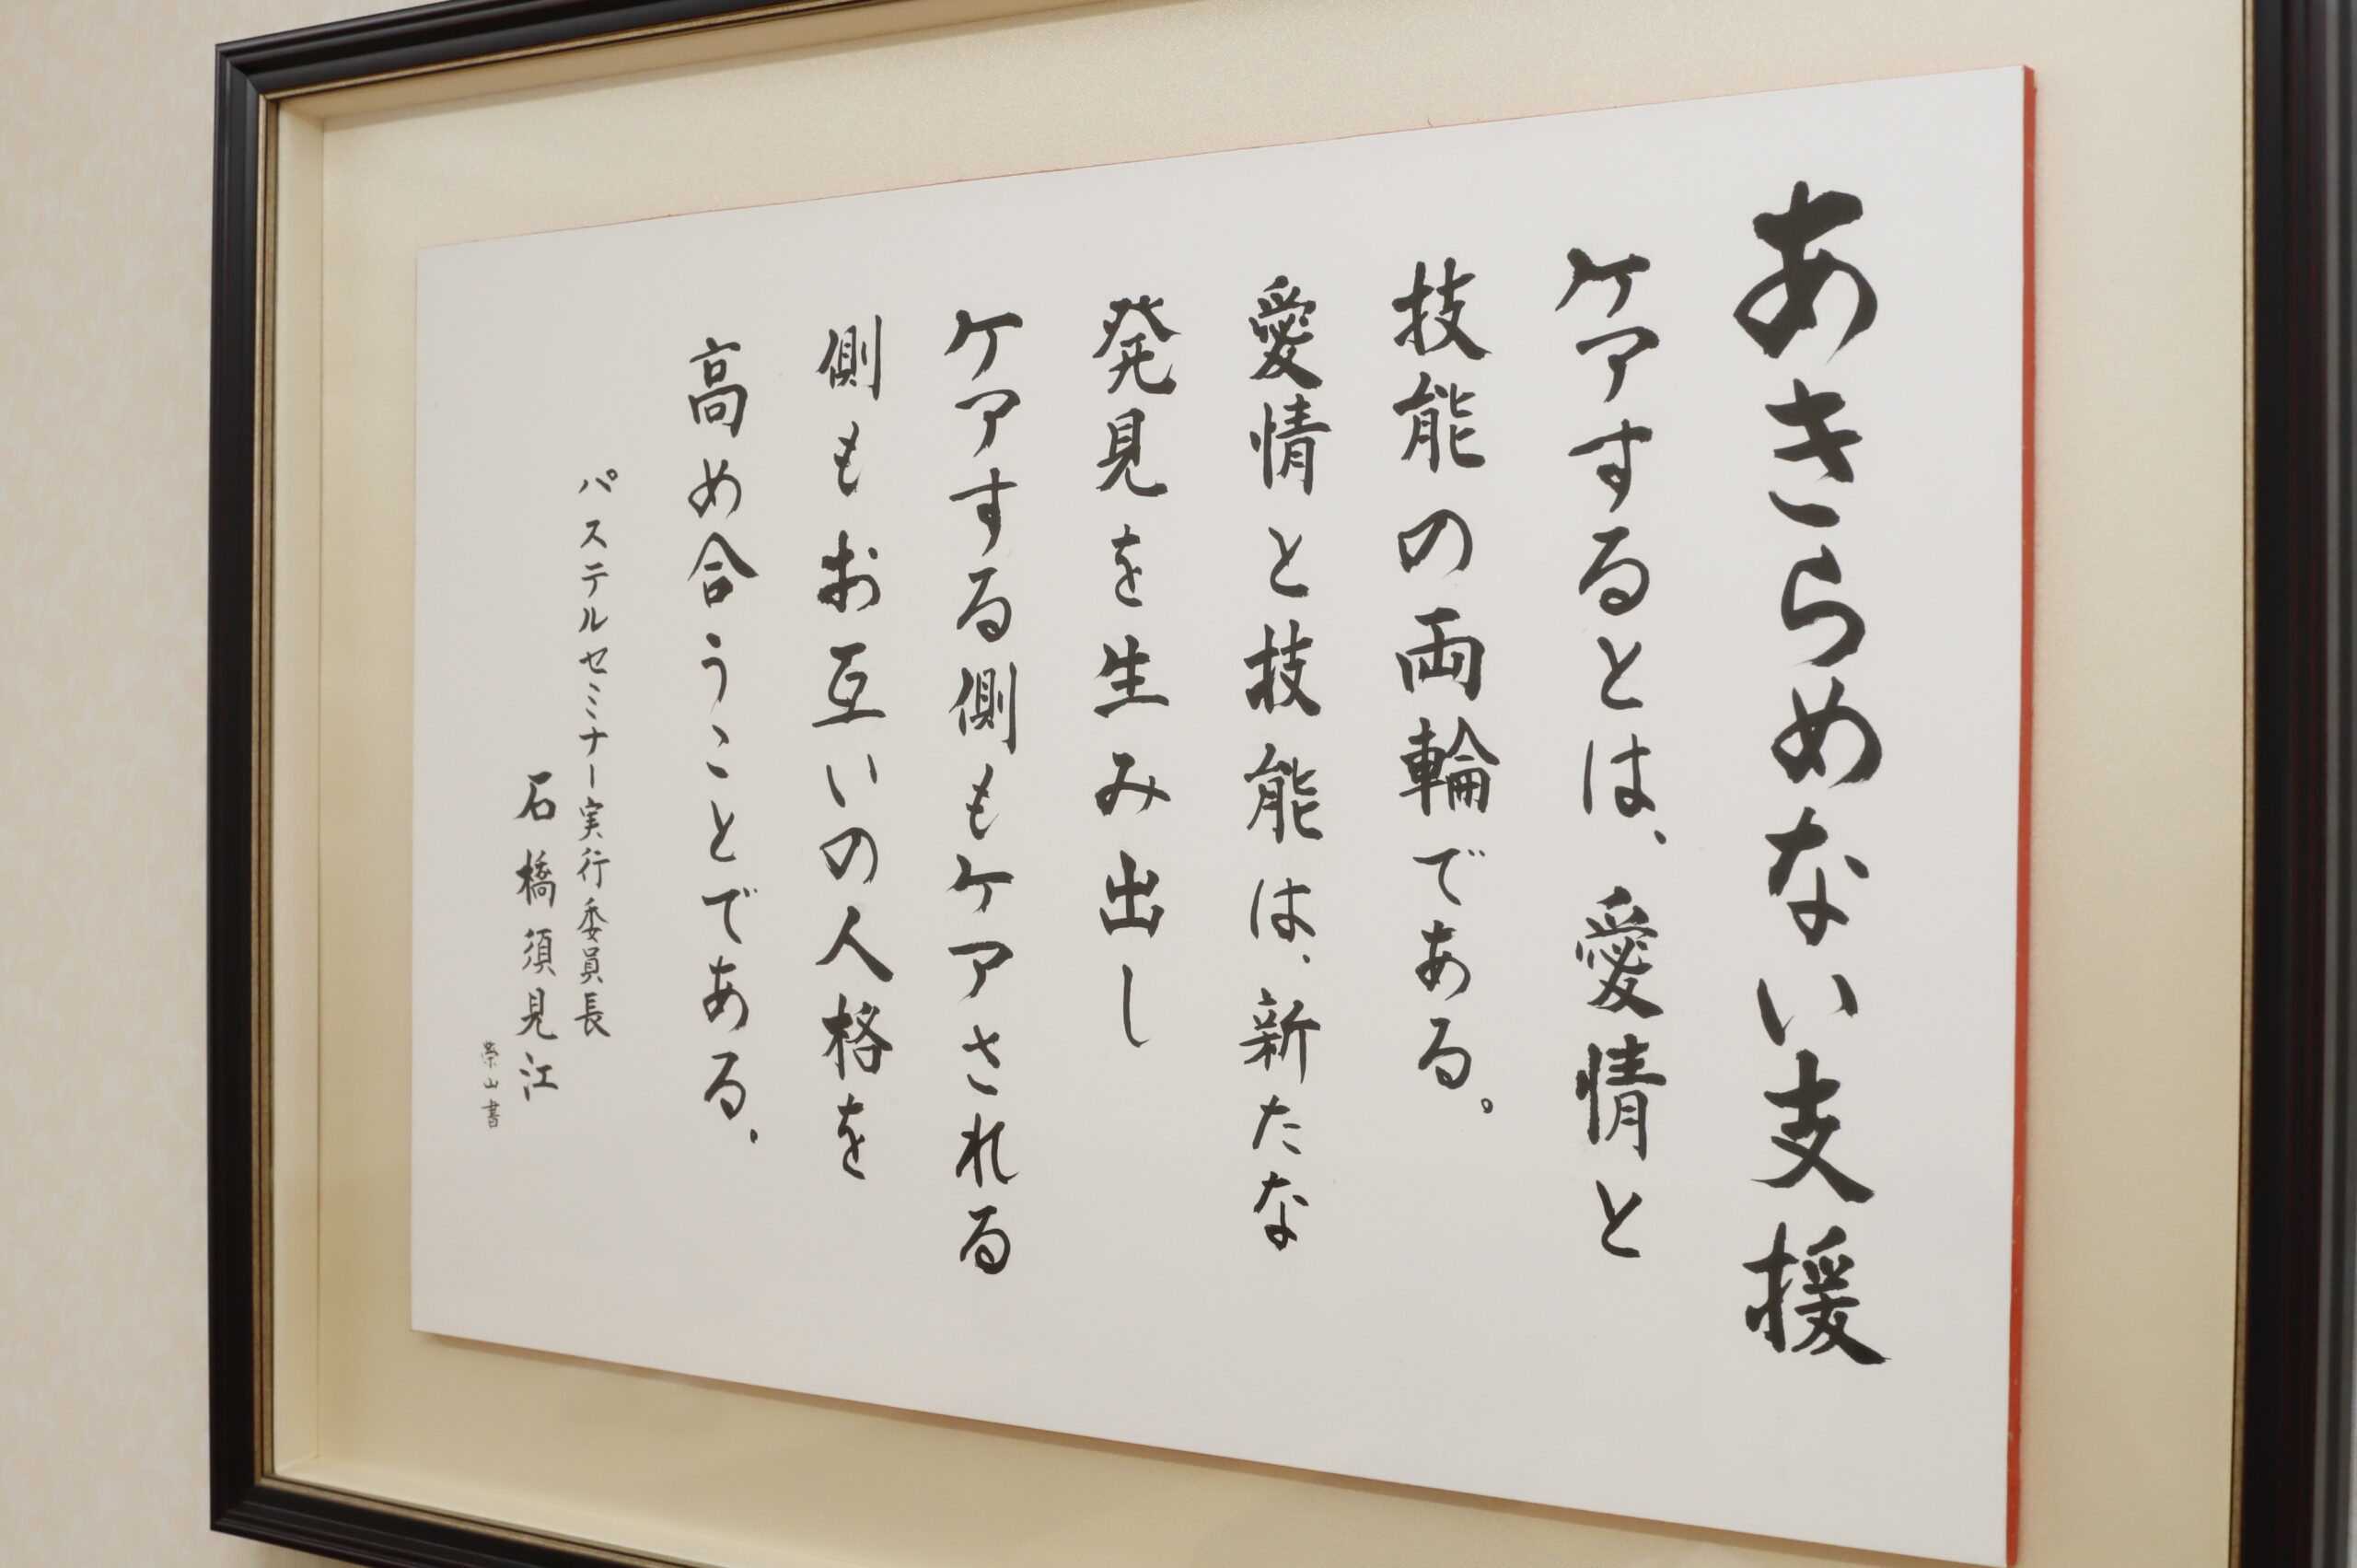 あきらめない支援
ケアするとは、愛情と
技能の両輪である。
愛情と技能は、新たな
発見を生み出し
ケアする側もケアされる
側もお互いの人格を
高め合うことである。
パステルセミナー実行委員長
石橋須見江
榮山書